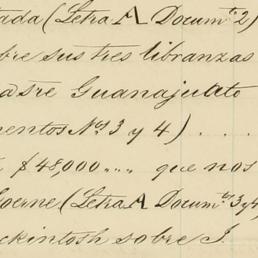 tada (Letra A Docum.to 2)
bre sus tres libranzas
astre Guanajuato
mentos Nos 3 y 4) ....
$48,000 ... que nos
oerne (Letra A Docum.tos 3 y 4)
ckintosh sobre J.